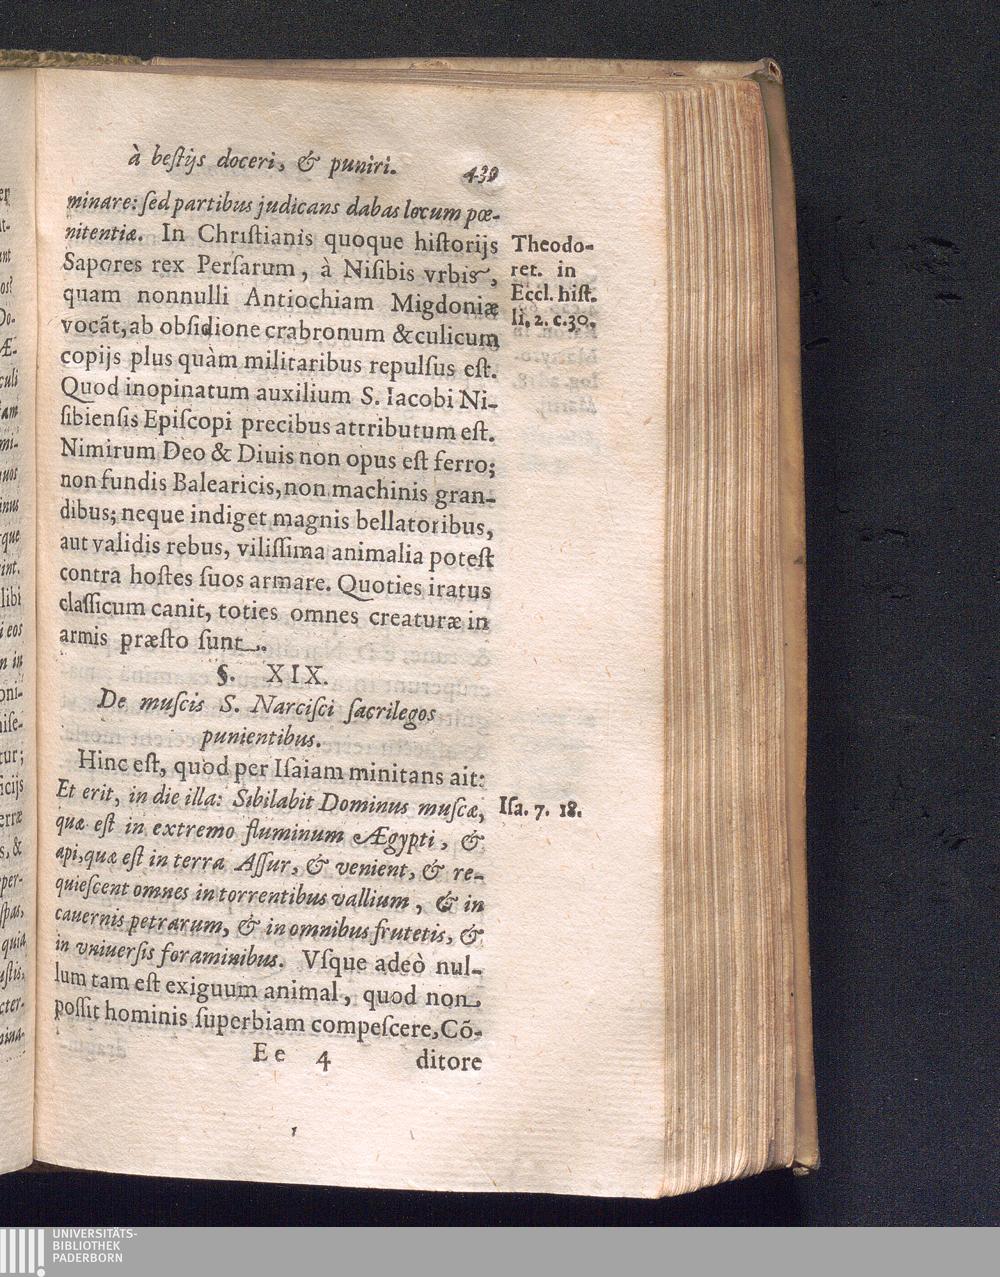 à beſtijs doceri, & puniri. 439
minare: ſed partibus judicans dabas locum pœ-
nitentiæ. In Chriſtianis quoque hiſtorijs
Sapores rex Perſarum, à Niſibis vrbis,
quam nonnulli Antiochiam Migdoniæ
vocãt, ab obſidione crabronum & culicum
copijs plus quàm militaribus repulſus eſt.
Quod inopinatum auxilium S. Iacobi Ni-
ſibienſis Epiſcopi precibus attributum eſt.
Nimirum Deo & Diuis non opus eſt ferro;
non fundis Balearicis, non machinis gran-
dibus; neque indiget magnis bellatoribus,
aut validis rebus, viliſſima animalia poteſt
contra hoſtes ſuos armare. Quoties iratus
claſſicum canit, toties omnes creaturæ in
armis præſto ſunt.
Theodo-
ret. in
Eccl. hiſt.
li. 2. c. 30.
§. XIX.
De muſcis S. Narciſci ſacrilegos
punientibus.
Hinc eſt, quòd per Iſaiam minitans ait:
Et erit, in die illa: Sibilabit Dominus muſcæ,
quæ eſt in extremo fluminum Ægypti, &
api, quæ eſt in terra Aſſur, & venient, & re-
quieſcent omnes in torrentibus vallium, & in
cauernis petrarum, & in omnibus frutetis, &
in vniuerſis foraminibus. Vſque adeò nul-
lum tam eſt exiguum animal, quod non
poſſit hominis ſuperbiam compeſcere, Cõ-
Iſa. 7. 18.
Ee 4 ditore
UNIVERSITÄTS-
BIBLIOTHEK
PADERBORN